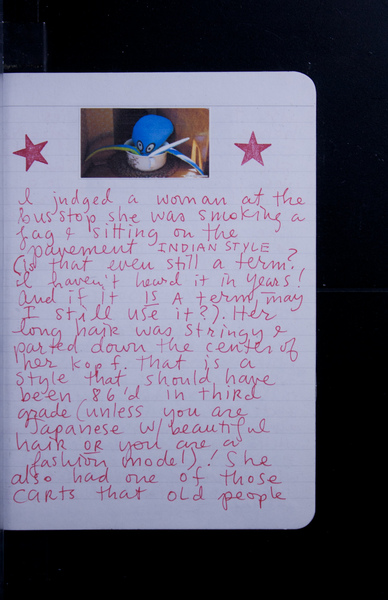 I judged a woman at the
bus stop she was smoking a
fag & sitting on the
pavement INDIAN STYLE
(Is that even still a term?
I haven't heard it in years!
And if it IS A term, may
I still use it?). Her
long hair was stringy &
parted down the center of
her kopf. That is a
style that should have
been 86'd in third
grade (unless you are
Japanese w/ beautiful
hair OR you are a
fashion model)! She
also had one of those
CARTS that old people